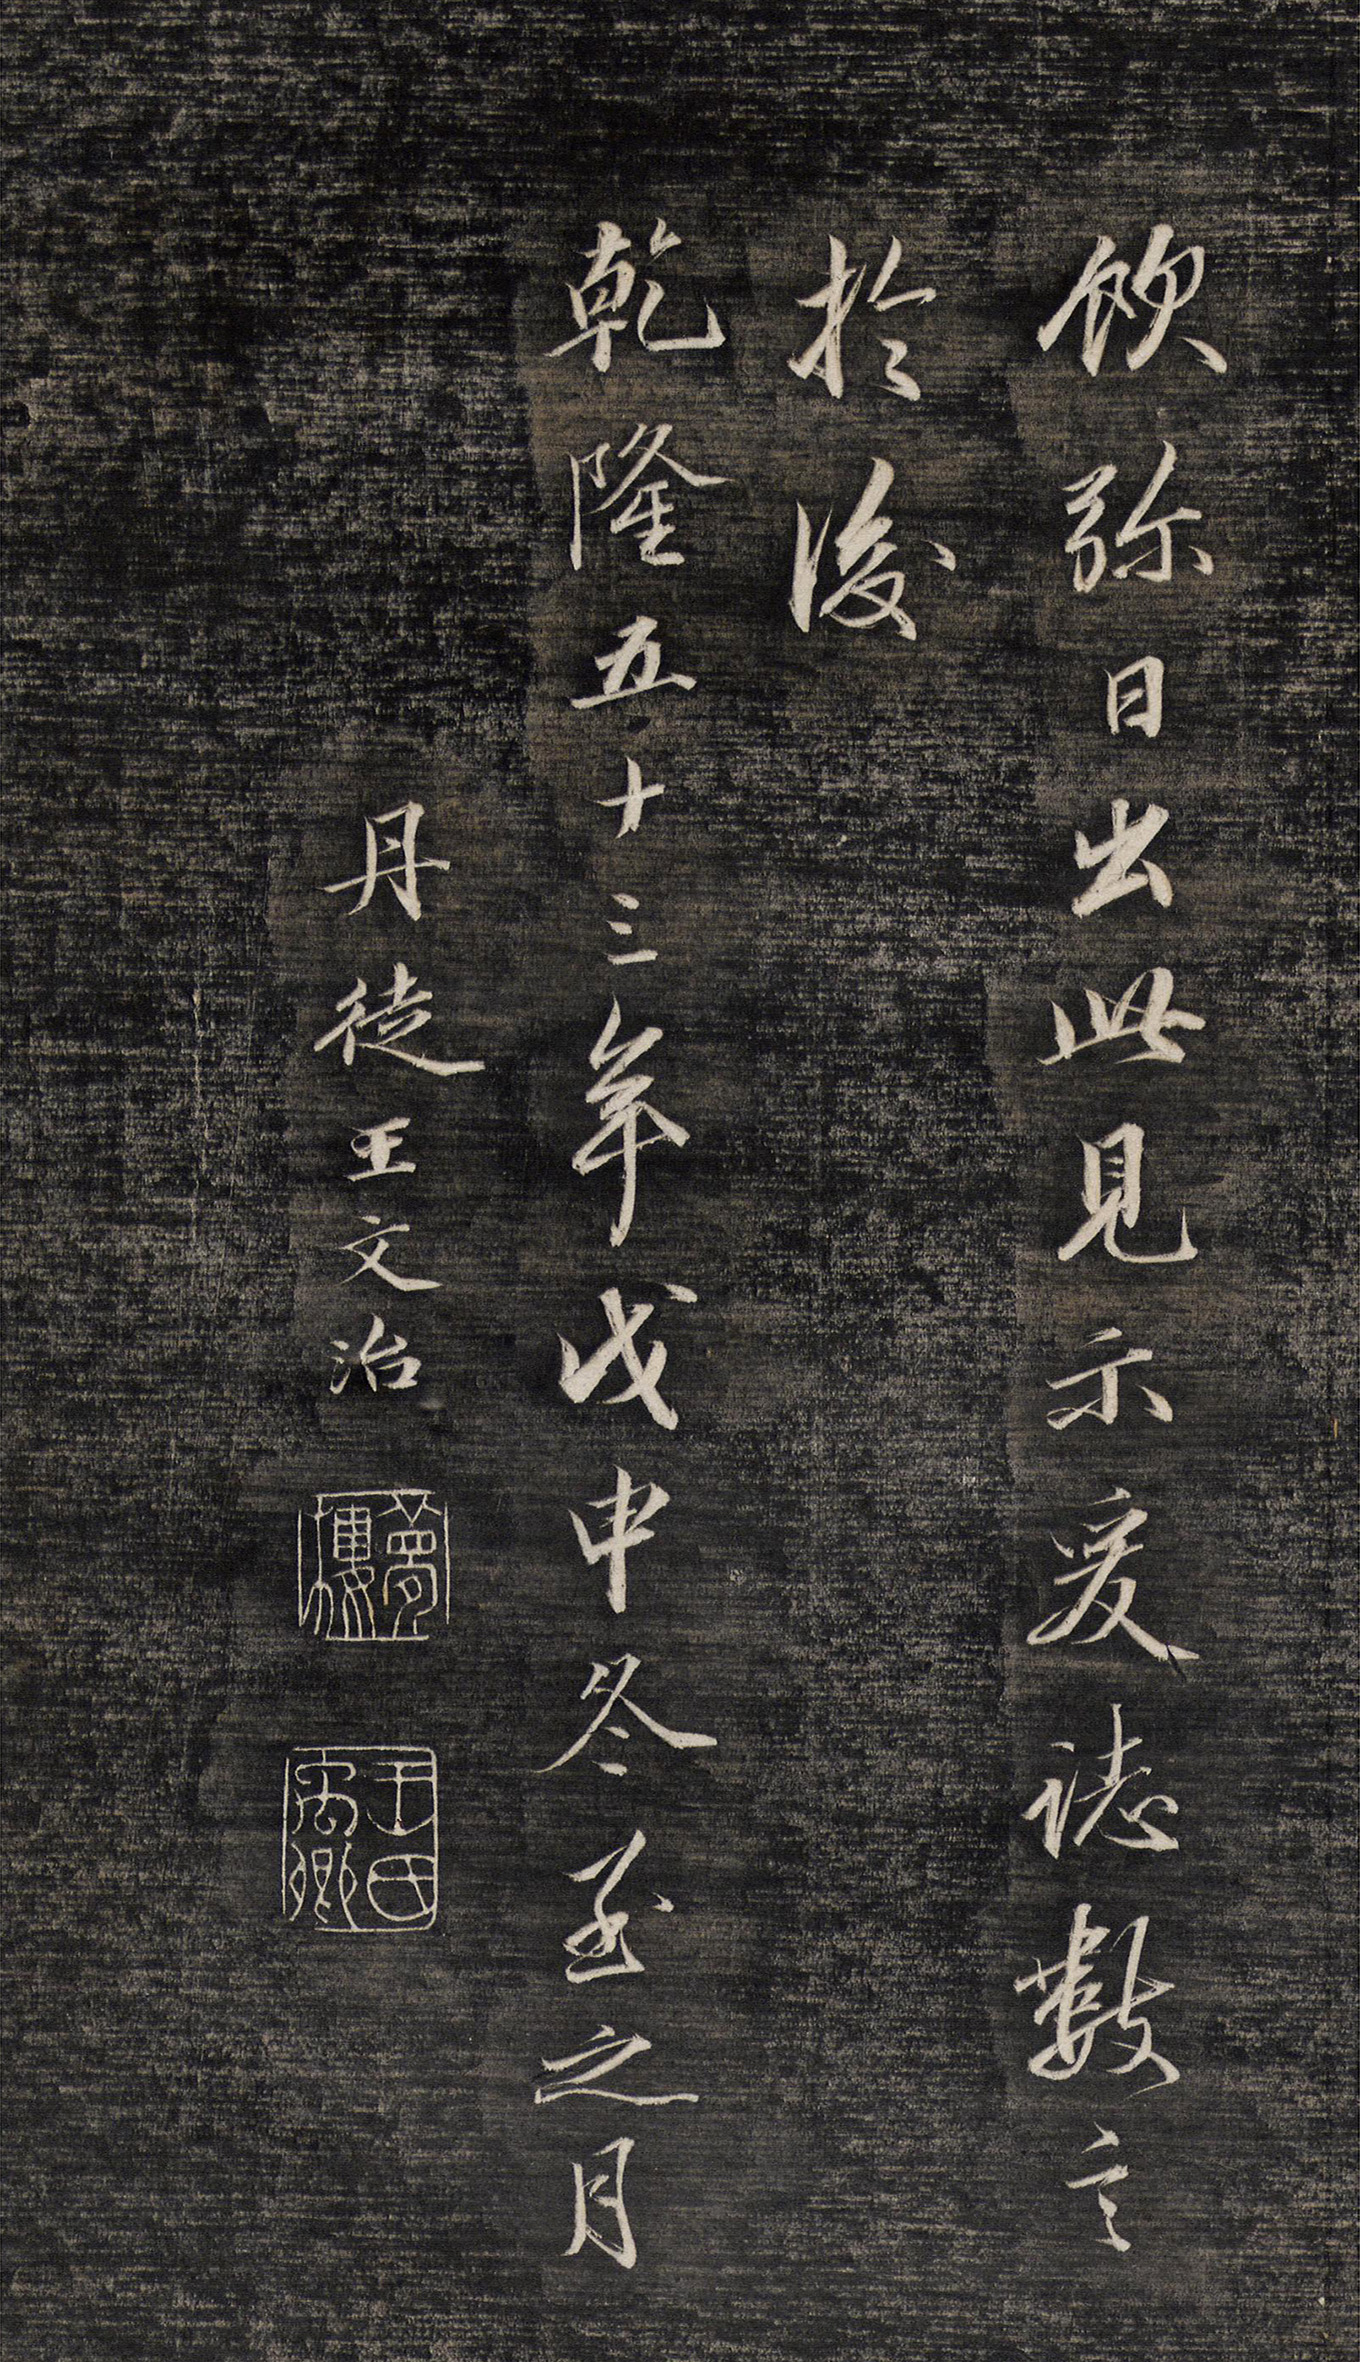 飲弥日出此見示爰誌數言
於後
乾隆五十三年戊申冬至之月
丹徒王文治
夢樓
王氏禹卿